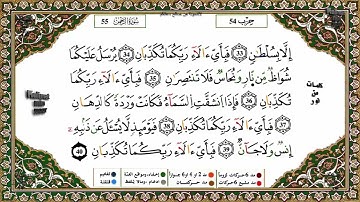 حزب 54
سورة الرحمن 55
إِلَّا بِسُلْطَـٰنٍ ﴿33﴾ فَبِأَىِّ ءَالَآءِ رَبِّكُمَا تُكَذِّبَانِ ﴿34﴾ يُرْسَلُ عَلَيْكُمَا
شُوَاظٌ مِّن نَّارٍ وَنُحَاسٌ فَلَا تَنتَصِرَانِ ﴿35﴾ فَبِأَىِّ ءَالَآءِ رَبِّكُمَا
تُكَذِّبَانِ ﴿36﴾ فَإِذَا انشَقَّتِ السَّمَآءُ فَكَانَتْ وَرْدَةً كَالدِّهَانِ
﴿37﴾ فَبِأَىِّ ءَالَآءِ رَبِّكُمَا تُكَذِّبَانِ ﴿38﴾ فَيَوْمَئِذٍ لَّا يُسْـَٔلُ عَن ذَنبِهِ
إِنسٌ وَلَا جَآنٌّ ﴿39﴾ فَبِأَىِّ ءَالَآءِ رَبِّكُمَا تُكَذِّبَانِ ﴿40﴾
من
نور